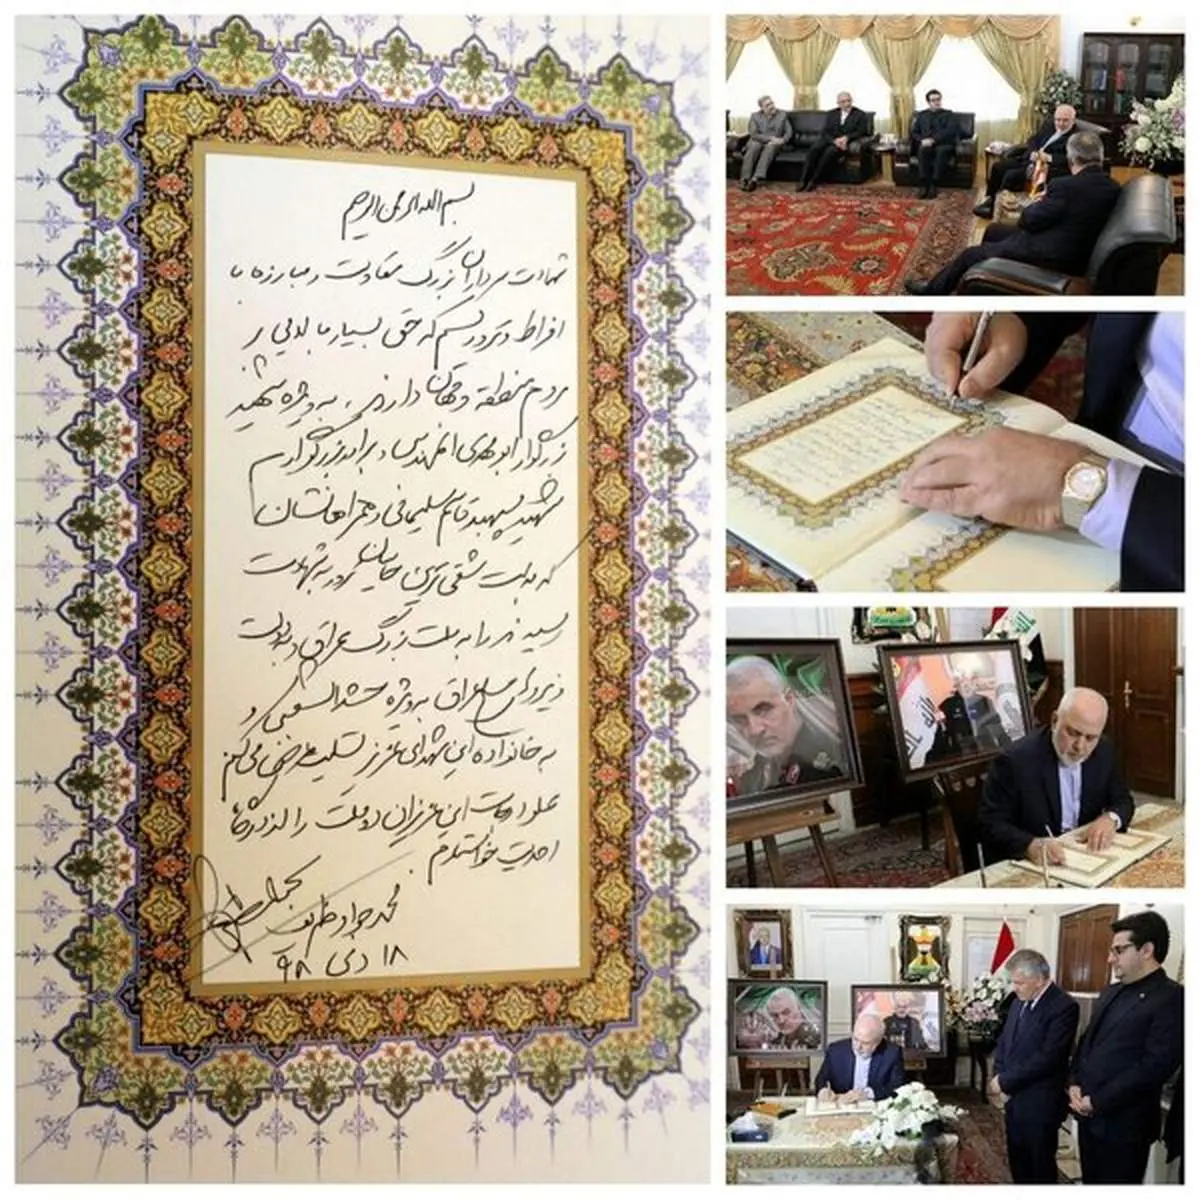 بسم الله الرحمن الرحیم
شهادت سرداران بزرگ مقاومت و مبارزه با
افراط و تروریسم که حق بسیار بالایی بر
مردم منطقه و جهان دارند، به ویژه شهید
بزرگوار ابومهدی المهندس و برادر بزرگوارم
شهید سپهبد قاسم سلیمانی و همراهانشان
که به دست شقی ترین جانیان ترور به شهادت
رسیدند را به ملت بزرگ عراق و به دولت
نیروهای مسلح عراق به ویژه حشد الشعبی و
به خانواده این شهدای عزیز تسلیت عرض می کنم
علو درجات این عزیزان دو ملت را از درگاه
احدیت خواستارم.
محمد جواد ظریف
۱۸ دی ۹۸